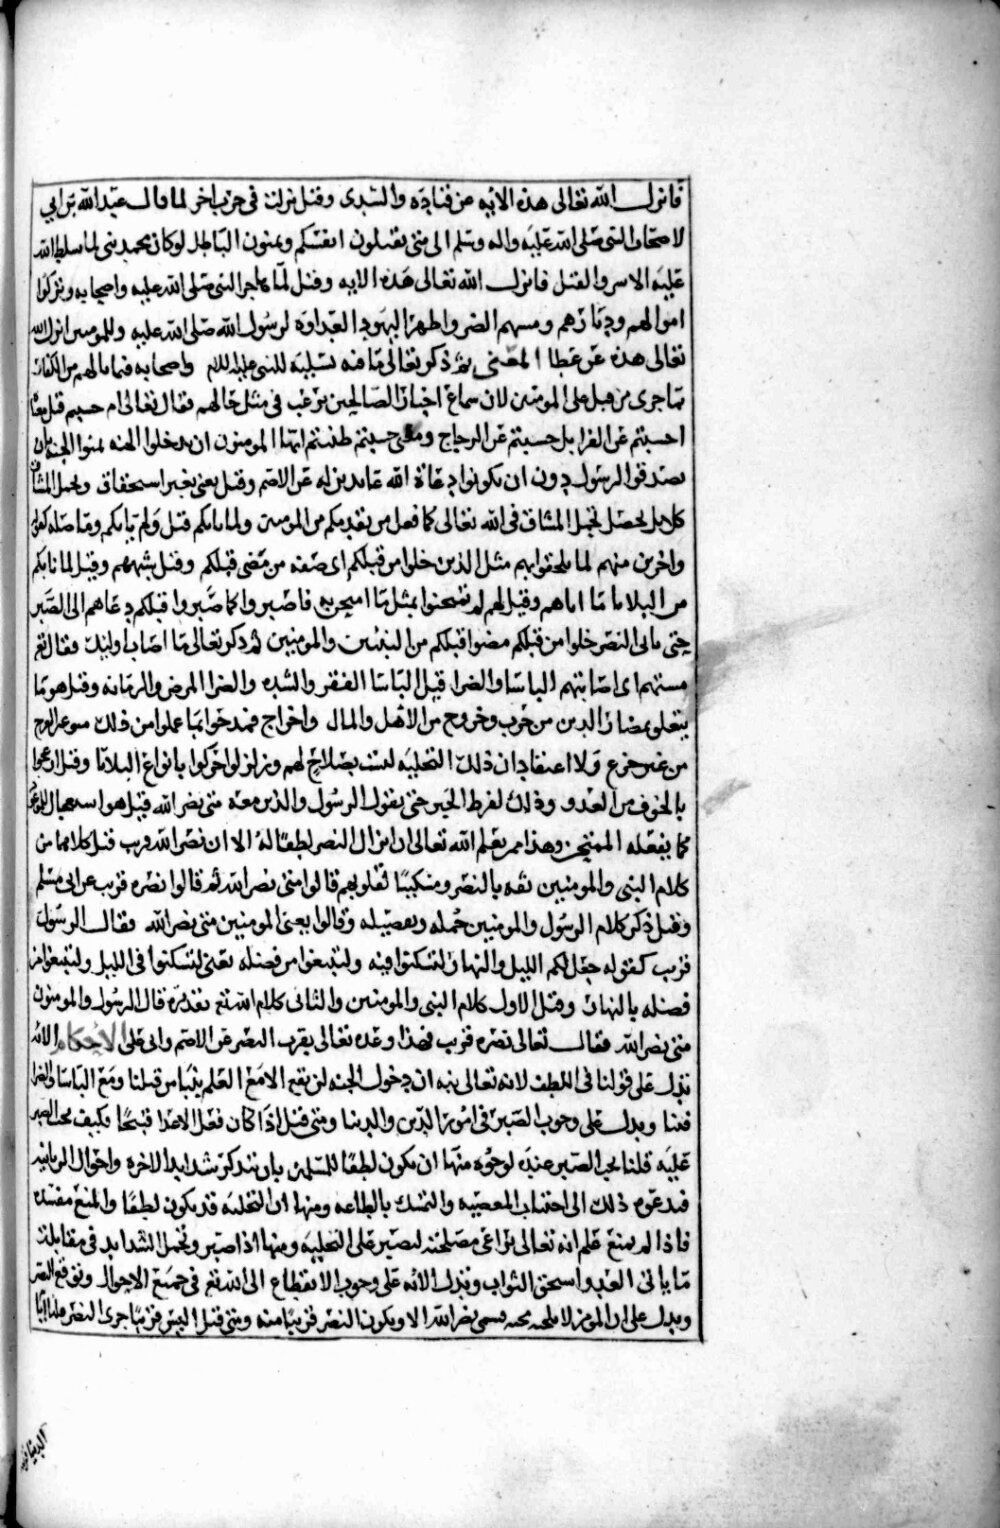 فانزل الله تعالى هذه الايه عن قتاده والسدى وقيل نزلت في حرب اخر لما قال عبد الله بن ابي
لاصحاب النبي صلى الله عليه واله وسلم الى متى تقتلون انفسكم وتمنون الباطل لو كان محمد نبي لما سلط الله
عليه الاسر والقتل فانزل الله تعالى هذه الايه وقيل لما هاجر النبي صلى الله عليه واصحابه وتركوا
اموالهم وديارهم ومسهم الضر واظهر اليهود العداوة لرسول الله صلى الله عليه وللمومنين انزل الله
تعالى هذه عن عطا المعنى ثم ذكر تعالى ما فيه تسليه للنبي عليه السلام واصحابه فيما نالهم من الكفار
مما جرى من قبل على المومنين لان سماع اخبار الصالحين يرغب في مثل حالهم فقال تعالى ام حسبتم قيل معناه
احسبتم عن الفرا بل حسبتم عن الزجاج ومعنى حسبتم ظننتم ايها المومنون ان تدخلوا الجنه
تصدقوا الرسول دون ان تكونوا دعاة الله عابدين له عن الاصم وقيل يعني بغير استحقاق وتحمل المشاق
كلا بل يحصل بتحمل المشاق في الله تعالى كما فعل من تقدمكم من المومنين ولما ياتكم قيل ولم ياتكم وما صله كقوله
واخرين منهم لما يلحقوا بهم مثل الذين خلوا من قبلكم اي صفه من مضى قبلكم وقيل شبههم وقيل لما ياتكم
من البلا ما اتاهم وقيل لهم لم تمتحنوا بمثل ما امتحن به فاصبروا كما صبروا قبلكم دعاهم الى الصبر
حتى ياتي النصر خلوا من قبلكم مضوا قبلكم من النبيين والمومنين ثم ذكر تعالى ما اصاب اوليك فقال تع
مستهم اي اصابتهم الباسا والضرا قيل الباسا الفقر والشده والضرا المرض والزمانه وقيل هو ما
يتعلق بمضار الدين من حرب وخروج من الاهل والمال واخراج فمدحوا بما عملوا من ذلك
من غير جزع ولا اعتقاد ان ذلك التخليه ليست بصلاح لهم وزلزلوا حركوا بانواع البلايا وقيل ازعجوا
بالخوف من العدو وذلك لفرط الحيره حتى يقول الرسول والذين معه متى نصر الله قيل هو استعجال
كما يفعله الممتحن وهذا ممن يعلم الله تعالى ان انزال النصر لطفا له الا ان نصر الله قريب قيل كلاهما من
كلام النبي والمومنين ثقه بالنصر وتسكينا لقلوبهم قالوا متى نصر الله ثم قالوا نصره قريب عن ابي مسلم
وقيل ذكر كلام الرسول والمومنين جمله وتفصيله وقالوا يعني المومنين متى نصر الله فقال الرسول
قريب كقوله جعل لكم الليل والنهار لتسكنوا فيه ولتبتغوا من فضله يعني لتسكنوا في الليل ولتبتغوا من
فضله بالنهار وقيل الاول كلام النبي والمومنين والثاني كلام الله تع تقديره قال الرسول والمومنون
متى نصر الله فقال تعالى نصره قريب فهذا وعده تعالى بقرب النصر عن الاصم وابي علي الاحكام الايه
تدل على قولنا في اللطف لانه تعالى نبه ان دخول الجنه لن يقع الا مع العلم بنبا من قبلنا ومع الباسا والضرا
فينا ويدل على وجوب الصبر في امور الدين والدنيا ومتى قيل اذا كان فعل الاعدا قبيحا فكيف يجب الصبر
عليه قلنا يجب الصبر عنده لوجوه منها ان يكون لطفا للمسلمين بان يتذكر شدايد الاخره واحوال الزبانيه
فيدعوه ذلك الى اجتناب المعصيه والتمسك بالطاعه ومنها ان التخليه قد يكون لطفا والمنع مفسده
فاذا لم يمنع علم انه تعالى يراعي مصلحته ليصير على التخليه ومنها اذا صبر وتحمل الشدايد في مقابلة
ما ياتي العبد واستحق الثواب وتدل الايه على وجوب الانقطاع الى الله تع في جميع الاحوال وتوقع النصر
ويدل على ان المومن لا يلحقه محنه فيتمنى نصر الله الا ويكون النصر قريبا منه ومتى قيل اليس قريبا جرى النصر